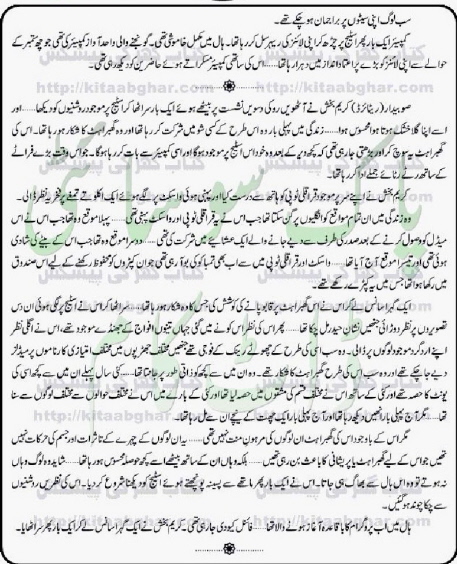 سب لوگ اپنی سیٹوں پر براجمان ہو چکے تھے۔
کمپیئر ایک بار پھر اسٹیج پر چڑھ کر اپنی لائنز کی ریہرسل کر رہا تھا۔ ہال میں مکمل خاموشی تھی۔ گونجنے والی واحد آواز کمپیئر کی تھی جو چھ ستمبر کے
حوالے سے اپنی لائنز کو بڑے پراعتماد انداز میں دہرا رہا تھا...... اس کی ساتھی کمپیئر مسکراتے ہوئے حاضرین کو دیکھ رہی تھی۔
صوبیدار (ریٹائرڈ) کریم بخش نے آٹھویں رو کی دسویں نشست پر بیٹھے ہوئے ایک بار سر اٹھا کر اسٹیج پر موجود روشنیوں کو دیکھا...... اور
اسے اپنا گلا خشک ہوتا ہوا محسوس ہوا...... زندگی میں پہلی بار وہ اس طرح کے کسی شو میں شرکت کر رہا تھا اور وہ گھبراہٹ کا شکار ہو رہا تھا۔ اس کی
گھبراہٹ یہ سوچ کر اور بڑھتی جا رہی تھی کہ کچھ دیر کے بعد وہ خود اس اسٹیج پر موجود ہوگا اور اسی کمپیئر سے بات کر رہا ہوگا۔ جو اس وقت بڑے فراٹے
کے ساتھ رٹے رٹائے جملے ادا کر رہا تھا۔
کریم بخش نے اپنے سر پر موجود قراقلی ٹوپی کو ہاتھ سے درست کیا اور پہنی ہوئی واسکٹ پر لگے ہوئے ایک اکلوتے تمغے پر فخریہ نظر ڈالی۔
وہ زندگی میں ان تمام مواقع کو انگلیوں پر گن سکتا تھا جب اس نے قراقلی ٹوپی اور واسکٹ پہنی تھی...... پہلا موقع وہ تھا جب اس نے اس
میڈل کو وصول کرنے کے بعد صدر کی طرف سے دیے جانے والے ایک عشائیے میں شرکت کی تھی...... دوسرا موقع وہ تھا جب اس کے بیٹے کی شادی
ہوئی تھی اور تیسرا موقع آج آیا تھا...... واسکٹ اور قراقلی ٹوپی میں سے اب بھی تمباکو کی بو آ رہی تھی جو ان کپڑوں کو محفوظ رکھنے کے لیے اس صندوق میں
رکھا ہوا تھا جس میں یہ کپڑے رکھے تھے۔
ایک گہرا سانس لے کر اس نے اس گھبراہٹ پر قابو پانے کی کوشش کی جس کا وہ شکار ہو رہا تھا...... سر اٹھا کر اس نے اسٹیج پر لگی ہوئی ان دس
تصویروں پر نظر دوڑائی جنہیں نشان حیدر مل چکا تھا...... پھر اس کی نظر اس کونے میں گئی جہاں تینوں افواج کے جھنڈے موجود تھے۔ اس نے اگلی نظر
اپنے اردگرد موجود لوگوں پر ڈالی۔ وہ سب اسی کی طرح کے چھوٹے رینک کے فوجی تھے جنہیں مختلف جھڑپوں میں مختلف امتیازی کارناموں پر میڈلز
دیے جا چکے تھے اور وہ سب اسی کی طرح گھبراہٹ کا شکار تھے۔ وہ ان میں سے کچھ کو ذاتی طور پر جانتا تھا...... کئی سال پہلے ان میں سے چھ اسی کی
یونٹ کا حصہ تھے اور کئی کے ساتھ اس نے مختلف جنگی مشقوں میں حصہ لیا تھا اور کئی کے بارے میں اس نے مختلف حوالوں سے مختلف لوگوں سے سنا
تھا...... مگر آج پہلی بار انہیں دیکھ رہا تھا اور آج پہلی بار ایک چھت کے نیچے ان سے مل رہا تھا۔
مگر اس کے باوجود اس کی گھبراہٹ ان لوگوں کی مرہون منت نہیں تھی...... یہ ان لوگوں کے چہرے کے تاثرات اور جسم کی حرکات نہیں
تھیں جو اس کے لیے گھبراہٹ یا پریشانی کا باعث بن رہی تھیں...... بلکہ وہاں ان کے ساتھ بیٹھے اسے کچھ حوصلہ محسوس ہو رہا تھا...... شاید وہ لوگ وہاں
نہ ہوتے تو وہ اس ہال سے بھاگ ہی جاتا۔ اس نے ایک بار پھر ماتھے سے پسینہ پونچھتے ہوئے اسٹیج کو دیکھنا شروع کر دیا۔ اس کی نظریں روشنیوں
سے چکاچوند ہو گئیں۔
ہال میں اب پروگرام کا باقاعدہ آغاز ہونے والا تھا...... فائنل کیو دی جا رہی تھی۔ کریم بخش نے ایک گہرا سانس لے کر ایک بار پھر سر اٹھایا۔
http://kitaabghar.com
کتاب گھر کی پیشکش